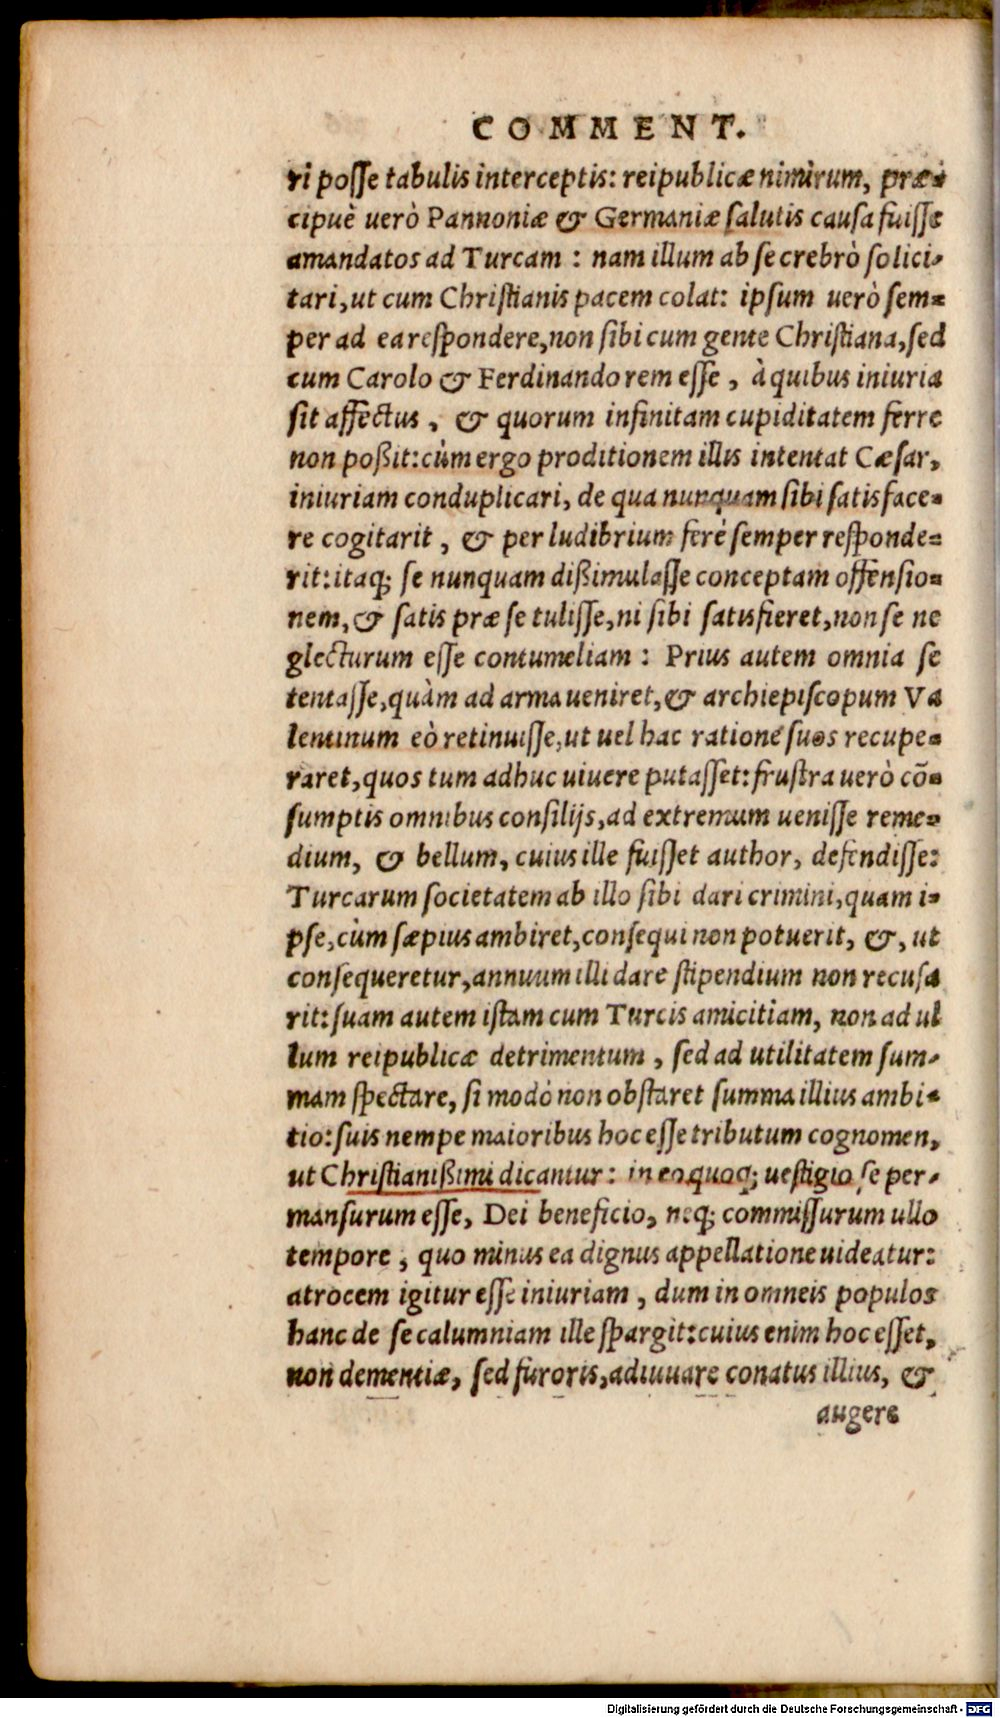 COMMENT.
ri posse tabulis interceptis: reipublicæ nimirum, præ-
cipuè uerò Pannoniæ & Germaniæ salutis causa fuisse
amandatos ad Turcam : nam illum ab se crebrò solici-
tari, ut cum Christianis pacem colat: ipsum uerò sem-
per ad ea respondere, non sibi cum gente Christiana, sed
cum Carolo & Ferdinando rem esse, à quibus iniuria
sit affectus, & quorum infinitam cupiditatem ferre
non poßit: cùm ergo proditionem illis intentat Cæsar,
iniuriam conduplicari, de qua nunquam sibi satisface-
re cogitarit, & per ludibrium ferè semper responde-
rit: itaq; se nunquam dißimulasse conceptam offensio-
nem, & satis præ se tulisse, ni sibi satisfieret, non se ne
glecturum esse contumeliam : Prius autem omnia se
tentasse, quàm ad arma ueniret, & archiepiscopum Va
lentinum eò retinuisse, ut uel hac ratione suos recupe-
raret, quos tum adhuc uiuere putasset: frustra uerò cō-
sumptis omnibus consilijs, ad extremum uenisse reme-
dium, & bellum, cuius ille fuisset author, defendisse:
Turcarum societatem ab illo sibi dari crimini, quam i-
pse, cùm sæpius ambiret, consequi non potuerit, &, ut
consequeretur, annuum illi dare stipendium non recusa
rit: suam autem istam cum Turcis amicitiam, non ad ul
lum reipublicæ detrimentum, sed ad utilitatem sum-
mam spectare, si modò non obstaret summa illius ambi-
tio: suis nempe maioribus hoc esse tributum cognomen,
ut Christianißimi dicantur: in eo quoq; uestigio se per-
mansurum esse, Dei beneficio, neq; commissurum ullo
tempore, quo minus ea dignus appellatione uideatur:
atrocem igitur esse iniuriam, dum in omneis populos
hanc de se calumniam ille spargit: cuius enim hoc esset,
non dementiæ, sed furoris, adiuuare conatus illius, &
augere
Digitalisierung gefördert durch die Deutsche Forschungsgemeinschaft - DFG